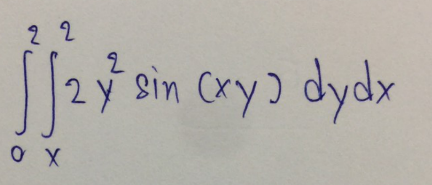 ∫₀² ∫ₓ² 2y² sin (xy) dydx